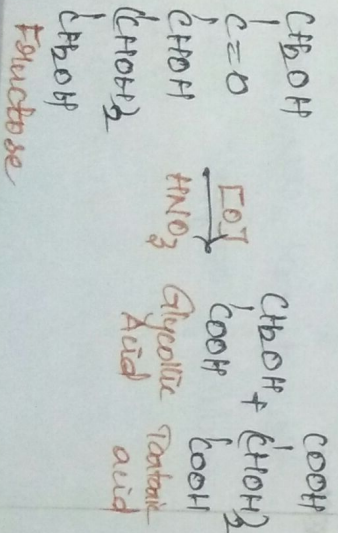 CH2OH
C=O
CHOH
(CHOH)2
CH2OH
Fructose
[O]
HNO3
CH2OH
COOH
Glycollic
Acid
+
COOH
(CHOH)2
COOH
Tartaric
acid